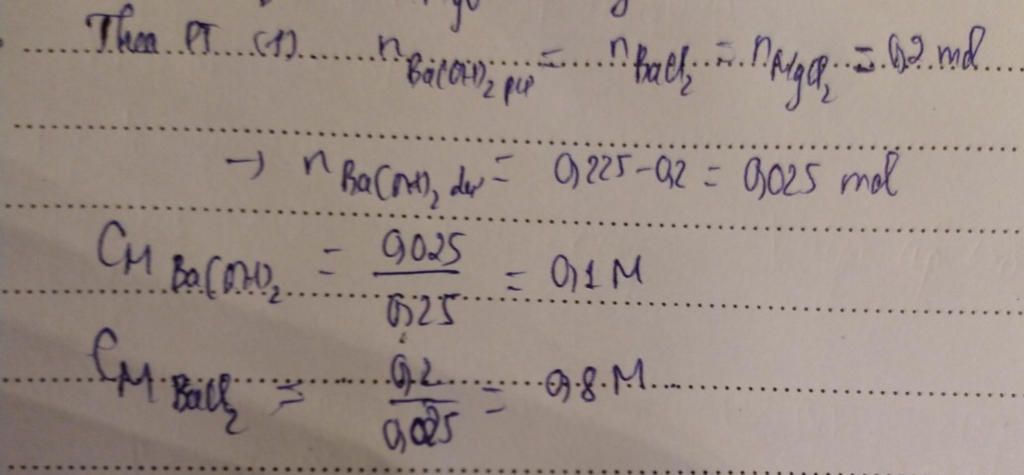 Theo PT (1) n Ba(OH)2 pư = n BaCl2 = n MgCl2 = 0,2 mol
→ n Ba(OH)2 dư = 0,225 - 0,2 = 0,025 mol
CM Ba(OH)2 = 0,025 / 0,25 = 0,1 M
CM BaCl2 = 0,2 / 0,025 = 0,8 M